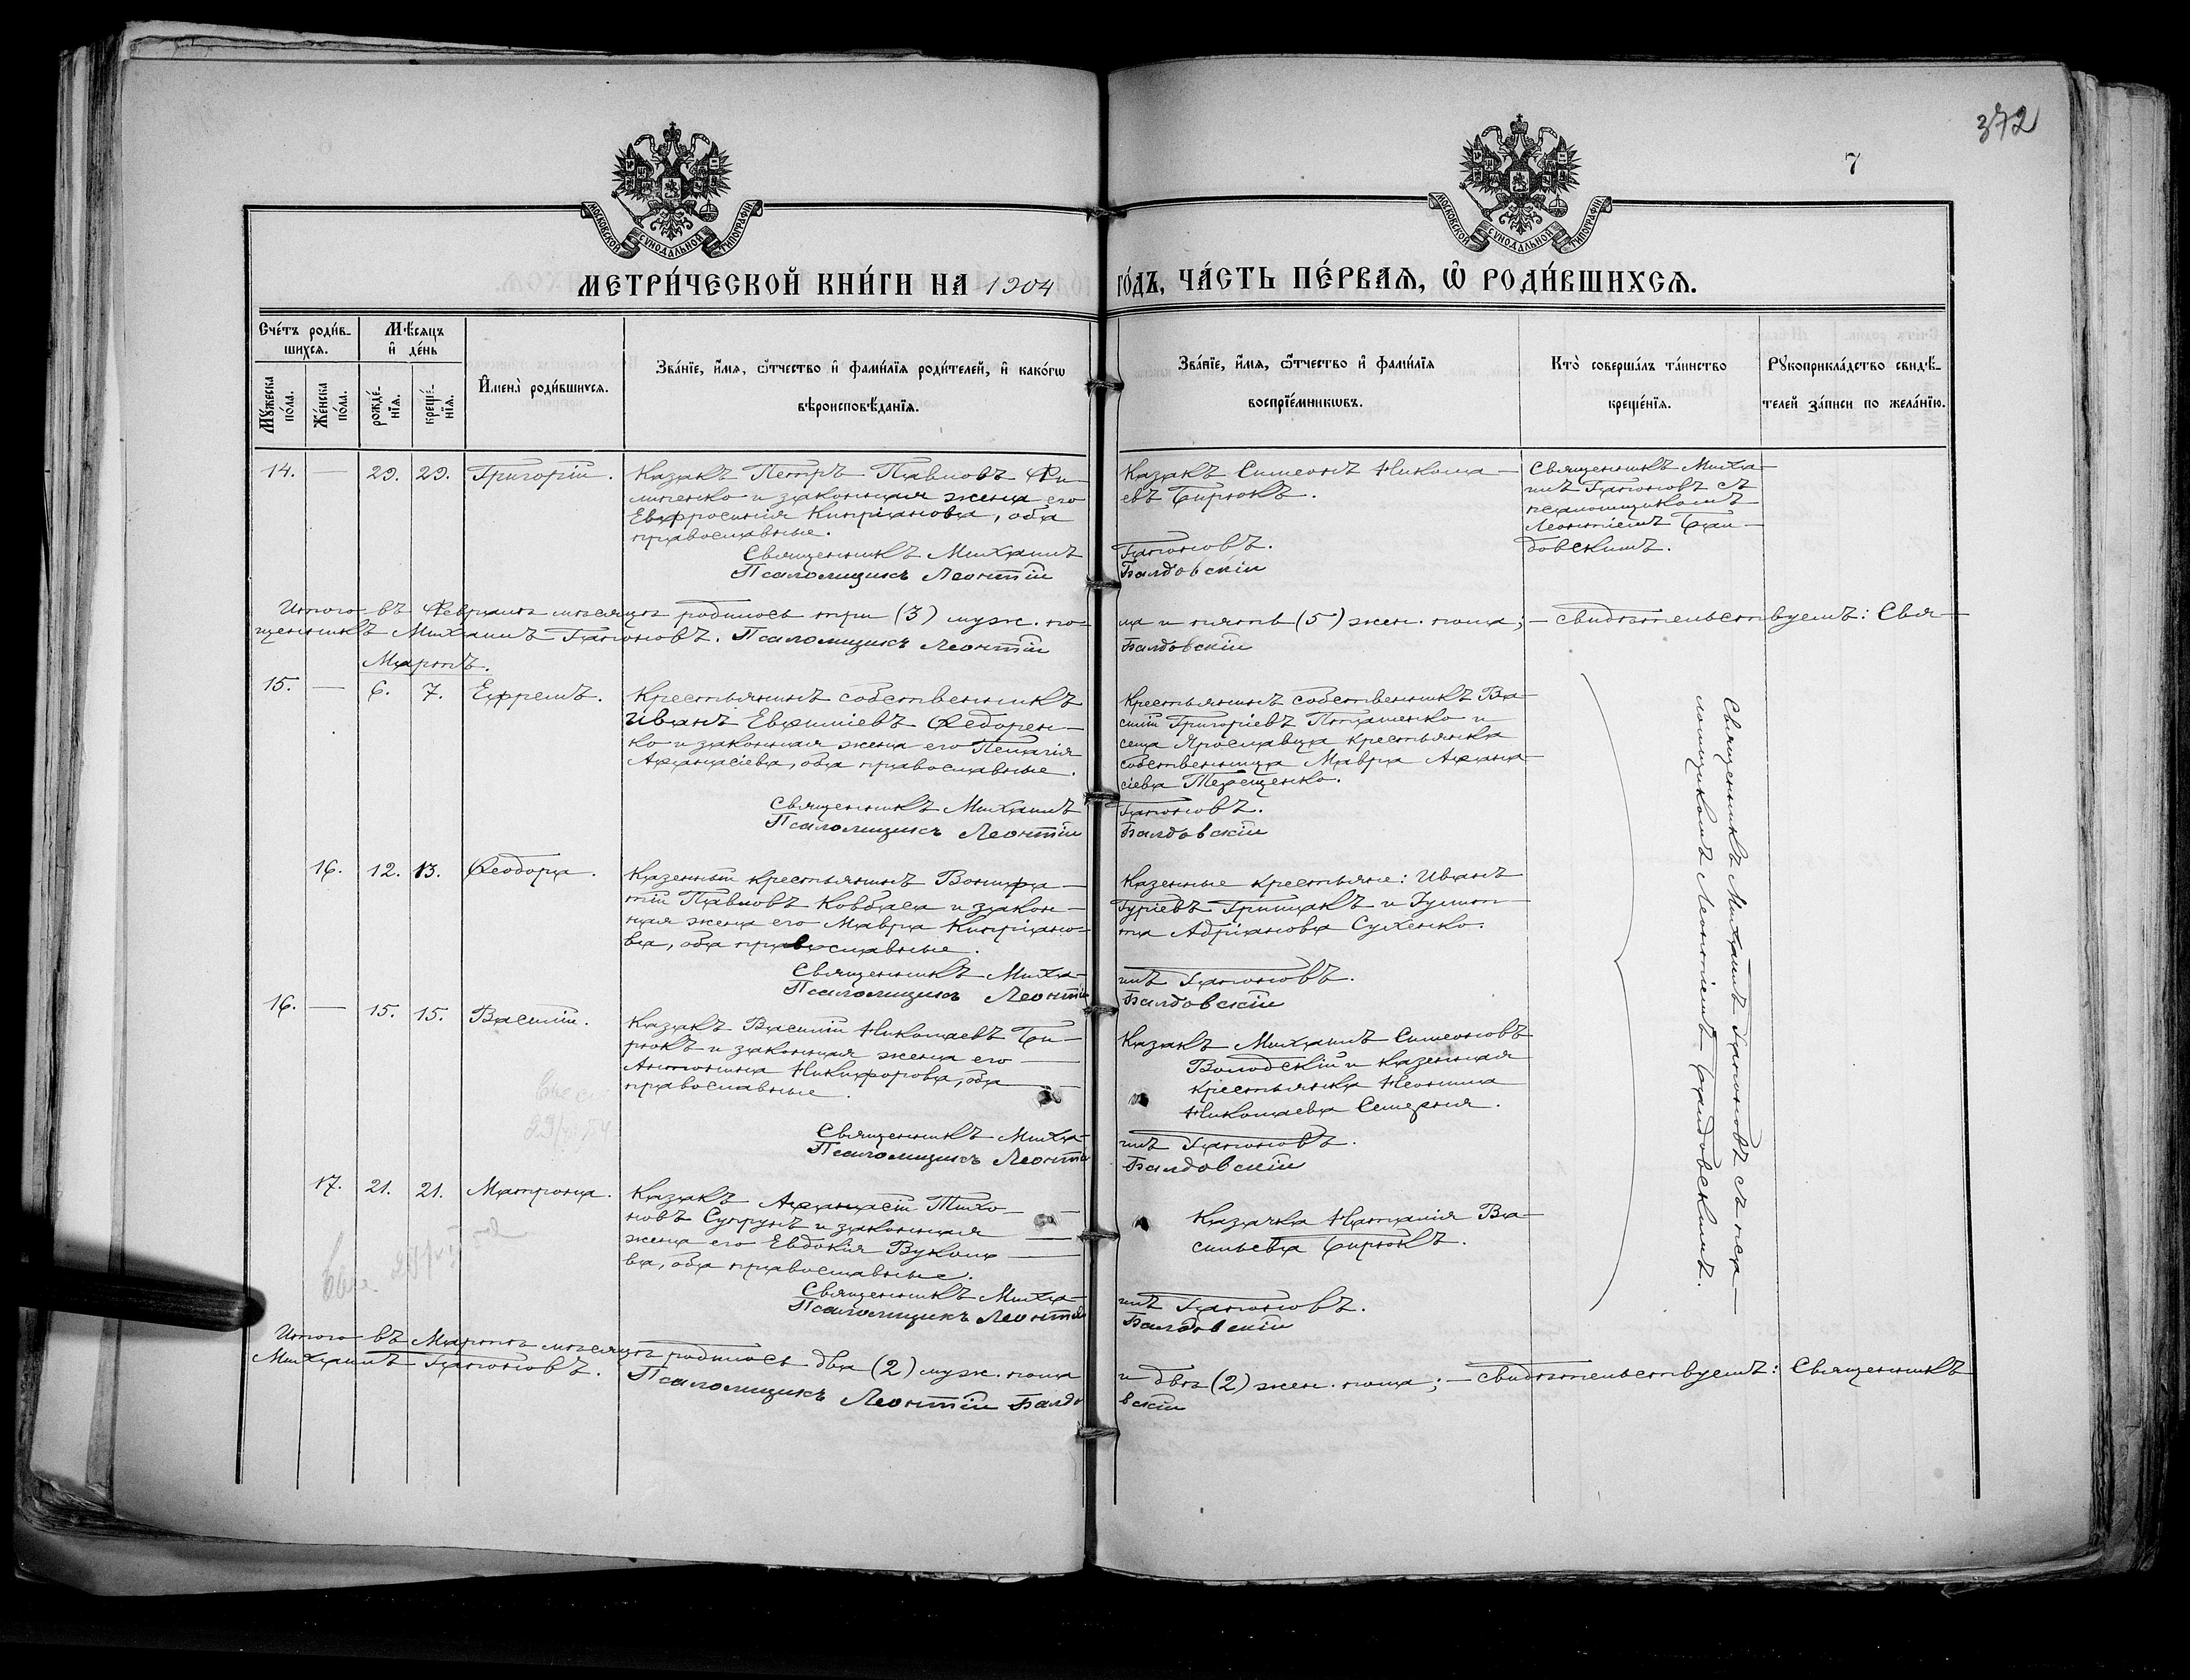 372
7
МОСКОВСКОЙ СѴНОДАЛЬНОЙ ТИПОГРАФІИ
МОСКОВСКОЙ СѴНОДАЛЬНОЙ ТИПОГРАФІИ
МЕТРИ́ЧЕСКОЙ КНИ́ГИ НА 1904 ГО́ДЪ, ЧА́СТЬ ПЕ́РВАѦ, Ѡ҆ РОДИ́ВШИХСѦ.
Сче́тъ роди́в-
шихсѧ.
Мꙋ́жеска
по́ла.
Же́нска
по́ла.
Мѣ́сѧцъ
и҆ де́нь
рожде́-
нїѧ.
креще́-
нїѧ.
И҆мена̀ роди́вшихсѧ.
Зва́нїе, и҆́мѧ, ѻ҆́тчество и҆ фами́лїѧ роди́телей, и҆ како́гѡ
вѣроисповѣ́данїѧ.
Зва́нїе, и҆́мѧ, ѻ҆́тчество и҆ фами́лїѧ
воспрїе́мникѡвъ.
Кто̀ соверша́лъ та́инство
креще́нїѧ.
Рꙋкоприкла́дство свидѣ́-
телей за́писи по жела́нїю.
14. — 29. 29. Григорій.
Казакъ Петръ Павловъ Фи-
липенко и законная жена его
Евфросинія Кипріанова, оба
православные.
Священникъ Михаилъ
Псаломщикъ Леонтій
Казакъ Симеонъ Никола-
евъ Бирюкъ.
Гапоновъ.
Балдовскій
Священникъ Миха-
илъ Гапоновъ съ
псаломщикомъ
Леонтіемъ Бал-
довскимъ.
Итого въ Февралѣ мѣсяцѣ родилось три (3) муж. по- ла и пять (5) жен. пола; — свидѣтельствуемъ: Свя-
щенникъ Михаилъ Гапоновъ. Псаломщикъ Леонтій Балдовскій
Мартъ.
15. — 6. 7. Ефремъ.
Крестьянинъ собственникъ
Иванъ Евфиміевъ Федорен-
ко и законная жена его Пелагія
Афанасіева, оба православные.
Священникъ Михаилъ
Псаломщикъ Леонтій
Крестьянинъ собственникъ Ва-
силій Григоріевъ Пташенко и
села Ярославца крестьянка
собственница Мавра Афана-
сіева Терещенко.
Гапоновъ.
Балдовскій
Священникъ Михаилъ Гапоновъ съ пса-
ломщикомъ Леонтіемъ Балдовскимъ.
16. 12. 13. Феодора.
Казенный крестьянинъ Вонифа-
тій Павловъ Ковбаса и закон-
ная жена его Мавра Кипріано-
ва, оба православные.
Священникъ Миха-
Псаломщикъ Леонтій
Казенные крестьяне: Иванъ
Гуріевъ Грицакъ и Гулит-
та Адріанова Сухенко.
илъ Гапоновъ.
Балдовскій
16. — 15. 15. Василій.
Казакъ Василій Николаевъ Би-
рюкъ и законная жена его —
Антонина Никифорова, оба —
православные.
Священникъ Миха-
Псаломщикъ Леонтій
Казакъ Михаилъ Симеоновъ
Володскій и казенная
крестьянка Неонила
Николаева Семерня.
илъ Гапоновъ.
Балдовскій
17. 21. 21. Матрона.
Казакъ Афанасій Тихо-
новъ Супрунъ и законная
жена его Евдокія Вукола —
ва, оба православные.
Священникъ Миха-
Псаломщикъ Леонтій
Казачка Наталія Ва-
сильева Бирюкъ.
илъ Гапоновъ.
Балдовскій
Итого въ Мартѣ мѣсяцѣ родилось два (2) муж. пола и двѣ (2) жен. пола; — свидѣтельствуемъ: Священникъ
Михаилъ Гапоновъ. Псаломщикъ Леонтій Балдовскій